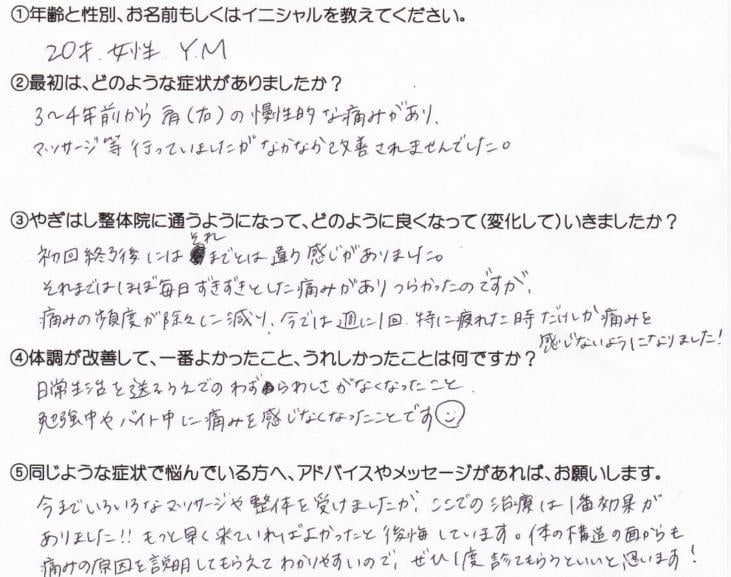 ①年齢と性別、お名前もしくはイニシャルを教えてください。
20才. 女性. Y.M
②最初は、どのような症状がありましたか？
3〜4年前から 肩(右)の 慢性的な痛みがあり、
マッサージ等 行っていましたが なかなか改善されませんでした。
③やぎはし整体院に通うようになって、どのように良くなって(変化して)いきましたか？
初回終了後には それまでとは 違う感じがありました。
それまではほぼ毎日 ずきずきとした痛みがあり つらかったのですが、
痛みの頻度が除々に減り、今では 週に1回. 特に疲れた時だけしか痛みを
感じないようになりました！
④体調が改善して、一番よかったこと、うれしかったことは何ですか？
日常生活を送るうえでの わずらわしさがなくなったこと.
勉強中やバイト中に痛みを感じなくなったことです☺
⑤同じような症状で悩んでいる方へ、アドバイスやメッセージがあれば、お願いします。
今までいろいろなマッサージや整体を受けましたが、ここでの治療は1番効果が
ありました!! もっと早く来ていればよかったと後悔しています。体の構造の面からも
痛みの原因を説明してもらえて わかりやすいので、ぜひ1度診てもらうといいと思います！